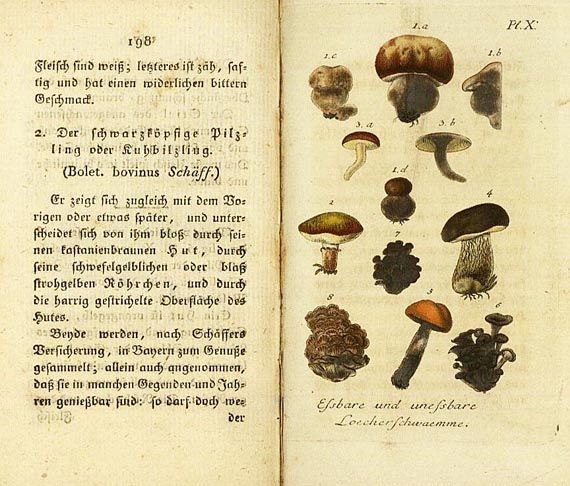 198
Fleisch sind weiß; letzteres ist zäh, saf-
tig und hat einen widerlichen bittern
Geschmack.
2. Der schwarzköpfige Pilz-
ling oder Kuhbilzling.
(Bolet. bovinus Schäff.)
Er zeigt sich zugleich mit dem Vo-
rigen oder etwas später, und unter-
scheidet sich von ihm bloß durch sei-
nen kastanienbraunen Hut, durch
seine schwefelgelblichen oder blaß
strohgelben Röhrchen, und durch
die harrig gestrichelte Oberfläche des
Hutes.
Beyde werden, nach Schäffers
Versicherung, in Bayern zum Genuße
gesammelt; allein auch angenommen,
daß sie in manchen Gegenden und Jah-
ren genießbar sind: so darf doch we-
der
Pl. X.
1.a
1.c
1.b
3.a
3.b
1.d
2
4
7
8
5
6
Essbare und unessbare
Loecherschwaemme.